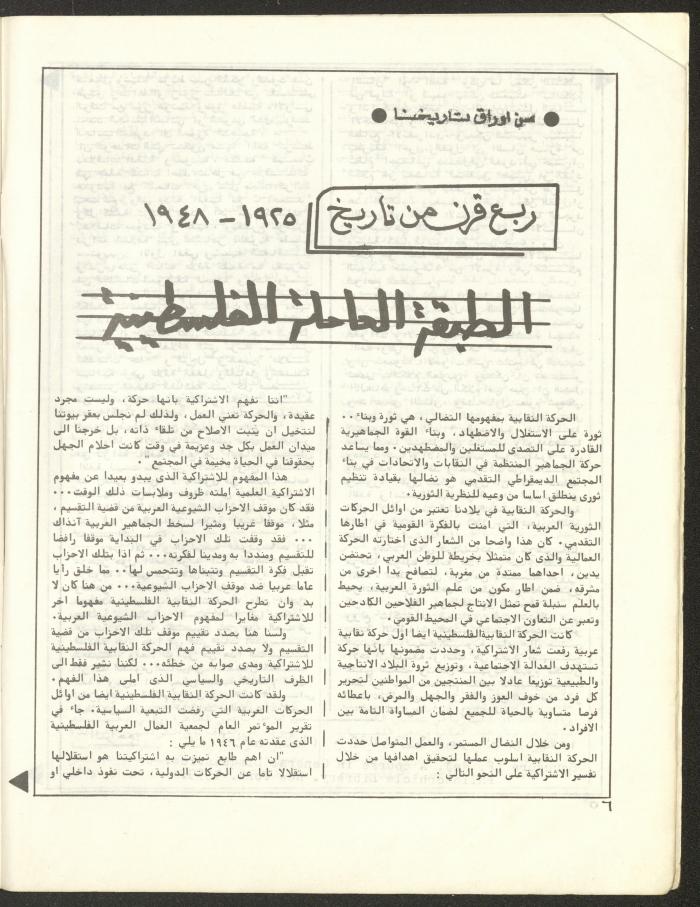 ● من اوراق تاريخنا ●
ربع قرن من تاريخ ١٩٢٥ - ١٩٤٨
الطبقة العاملة الفلسطينية
الحركة النقابية بمفهومها النضالي، هي ثورة وبناء ٠٠
ثورة على الاستغلال والاضطهاد، وبناء القوة الجماهيرية
القادرة على التصدى للمستغلين والمضطهدين. ومما يساعد
حركة الجماهير المنتظمة في النقابات والاتحادات في بناء
المجتمع الديمقراطي التقدمي هو نضالها بقيادة تنظيم
ثورى ينطلق اساسا من وعيه للنظرية الثورية.
والحركة النقابية في بلادنا تعتبر من اوائل الحركات
الثورية العربية، التي امنت بالفكرة القومية في اطارها
التقدمي. كان هذا واضحا من الشعار الذى اختارته الحركة
العمالية والذى كان متمثلا بخريطة للوطن العربي، تحتضن
يدين، احداهما ممتدة من مغربة، لتصافح يدا اخرى من
مشرقه، ضمن اطار مكون من علم الثورة العربية، يحيط
بالعلم سنبلة قمح تمثل الانتاج لجماهير الفلاحين الكادحين
وتعبر عن التعاون الاجتماعي في المحيط القومي.
كانت الحركة النقابية الفلسطينية ايضا اول حركة نقابية
عربية رفعت شعار الاشتراكية، وحددت مضمونها بانها حركة
تستهدف العدالة الاجتماعية، وتوزيع ثروة البلاد الانتاجية
والطبيعية توزيعا عادلا بين المنتجين من المواطنين لتحرير
كل فرد من خوف العوز والفقر والجهل والمرض، باعطائه
فرصا متساوية بالحياة للجميع لضمان المساواة التامة بين
الافراد.
ومن خلال النضال المستمر، والعمل المتواصل حددت
الحركة النقابية اسلوب عملها لتحقيق اهدافها من خلال
تفسير الاشتراكية على النحو التالي :
"اننا نفهم الاشتراكية بانها حركة، وليست مجرد
عقيدة، والحركة تعني العمل، ولذلك لم نجلس بعقر بيوتنا
لنتخيل ان ينبت الاصلاح من تلقاء ذاته، بل خرجنا الى
ميدان العمل بكل جد وعزيمة في وقت كانت احلام الجهل
بحقوقنا في الحياة مخيمة في المجتمع".
هذا المفهوم للاشتراكية الذى يبدو بعيدا عن مفهوم
الاشتراكية العلمية املته ظروف وملابسات ذلك الوقت٠٠٠
فقد كان موقف الاحزاب الشيوعية العربية من قضية التقسيم،
مثلا، موقفا غريبا ومثيرا لسخط الجماهير العربية آنذاك
٠٠٠ فقد وقفت تلك الاحزاب في البداية موقفا رافضا
للتقسيم ومنددا به ومدينا لفكرته٠٠٠ ثم اذا بتلك الاحزاب
تقبل فكرة التقسيم وتتبناها وتتحمس لها٠٠ مما خلق رأيا
عاما عربيا ضد موقف الاحزاب الشيوعية٠٠٠ من هنا كان لا
بد وان تطرح الحركة النقابية الفلسطينية مفهوما اخر
للاشتراكية مغايرا لمفهوم الاحزاب الشيوعية العربية.
ولسنا هنا بصدد تقييم موقف تلك الاحزاب من قضية
التقسيم ولا بصدد تقييم فهم الحركة النقابية الفلسطينية
للاشتراكية ومدى صوابه من خطئه٠٠٠ لكننا نشير فقط الى
الظرف التاريخي والسياسي الذى املى هذا الفهم.
ولقد كانت الحركة النقابية الفلسطينية ايضا من اوائل
الحركات العربية التي رفضت التبعية السياسية. جاء في
تقرير المؤتمر العام لجمعية العمال العربية الفلسطينية
الذى عقدته عام ١٩٤٦ ما يلي :
"ان اهم طابع تميزت به اشتراكيتنا هو استقلالها
استقلالا تاما عن الحركات الدولية، تحت نفوذ داخلي او
٦